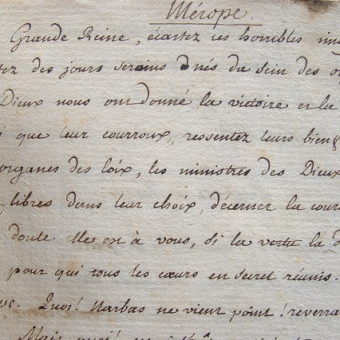 Mérope
Grande Reine, écartez ces horribles
des jours serains nés du sein des
Dieux nous ont donné la victoire et la
que leur courroux, ressentez leurs bien
organes des loix, les ministres des Dieux
libres dans leur choix, décerner la cour
doute elle est à vous, si la vertu la d
pour qui tous les cœurs en secret réunis.
Quoi! Narbas ne vient point! reverra